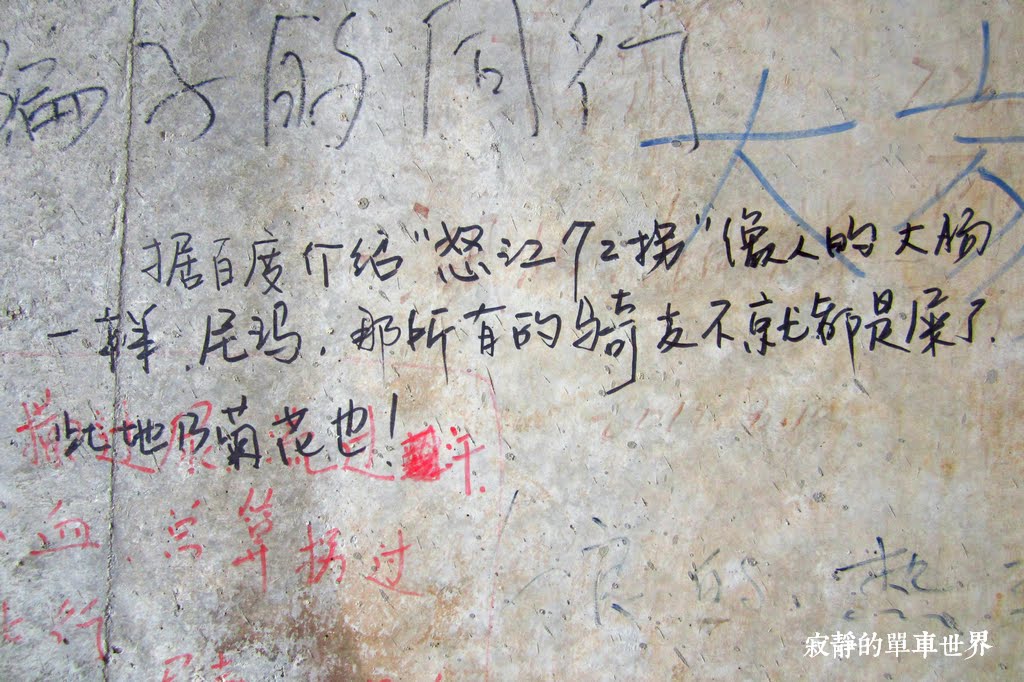 的同行
大
据百度介绍“怒江72拐”像人的大肠
一样.尼玛.那所有的骑友不就都是屎了.
此地乃菊花也!
汗.
血.总算拐过
行
良的
寂靜的單車世界